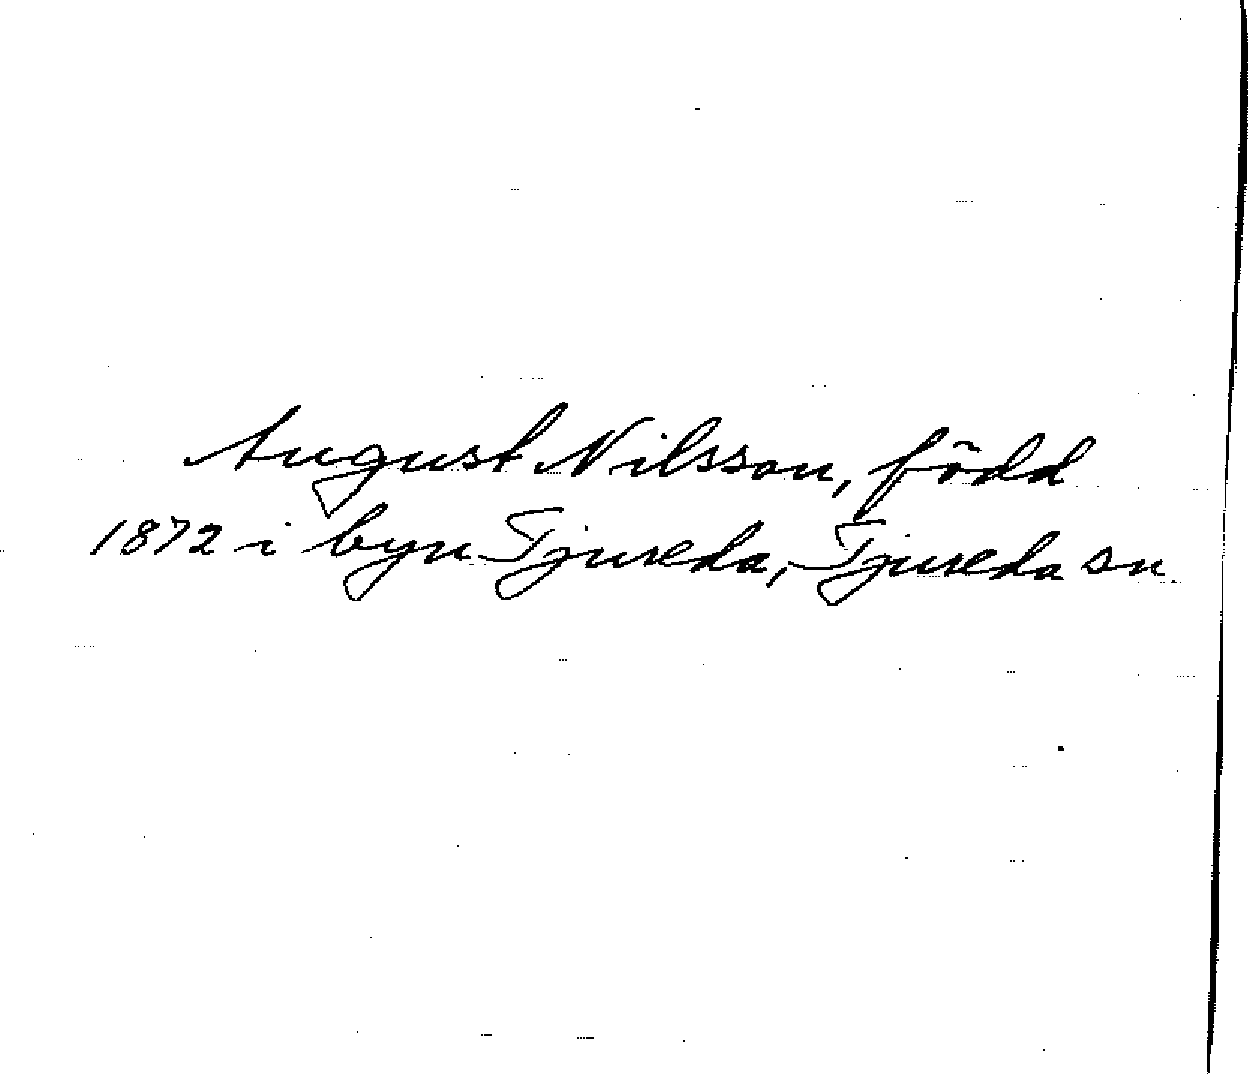 August Nilsson, född
1872 i byn Tjureda, Tjureda sn.